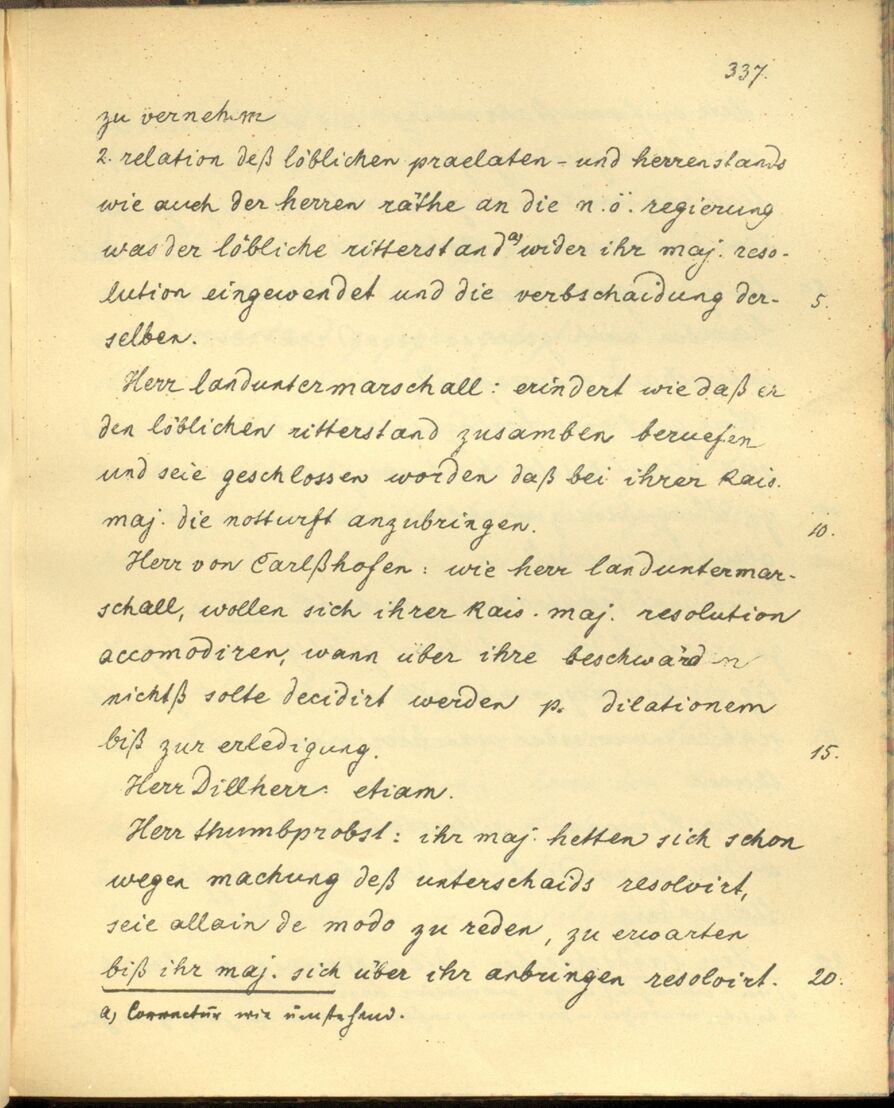 337.
zu vernehm
2. relation deß löblichen praelaten- und herrenstands
wie auch der herren räthe an die n. ö. regierung
was der löbliche ritterstand a) wider ihr maj. reso-
lution eingewendet und die verbschaidung der- 5.
selben.
Herr landuntermarschall: erindert wie daß er
den löblichen ritterstand zusamben beruefen
und seie geschlossen worden daß bei ihrer kais.
maj. die notturft anzubringen. 10.
Herr von Carlßhofen: wie herr landuntermar-
schall, wollen sich ihrer kais. maj. resolution
accomodiren, wann über ihre beschwärden
nichtß solte decidirt werden p. dilationem
biß zur erledigung. 15.
Herr Dillherr: etiam.
Herr thumbprobst: ihr maj. hetten sich schon
wegen machung deß unterschaids resolvirt,
seie allain de modo zu reden, zu erwarten
biß ihr maj. sich über ihr anbringen resolvirt. 20.
a) Correctur wie umstehend.